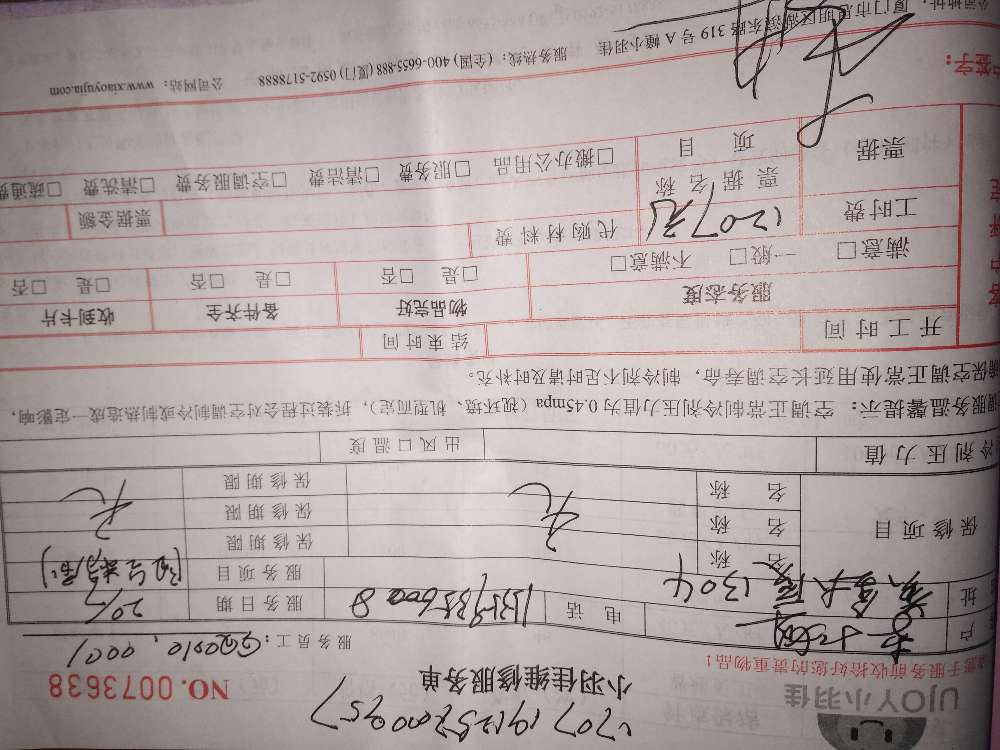 UJOY小羽佳
小羽佳维修服务单
NO. 0073638
请您于服务前收拾好您的贵重物品!
服务员工:
户
电 话
服务日期
址
1304
服务项目
保修项目
名 称
保修期限
名 称
无
保修期限
无
名 称
保修期限
无
冷剂压力值
出风口温度
调服务温馨提示: 空调正常制冷剂压力值为 0.45mpa (视环境、机型而定), 拆装过程会对空调制冷或制热造成一定影响,
确保空调正常使用延长空调寿命, 制冷剂不足时请及时补充。
开工时间
结束时间
服务态度
物品完好
备件齐全
收到卡片
满意□ 一般□ 不满意□
□是 □否
□是 □否
□是 □否
工时费
120元
代购材料费
票据
票据名称
票据金额
项 目
□搬办公用品 □服务费 □清洁费 □空调服务费 □清洗费 □疏通费
签字:
公司地址: 厦门市思明区湖滨东路 319 号 A 幢小羽佳 服务热线: (全国) 400-6655-888 (厦门) 0592-5178888 公司网站: www.xiaoyujia.com